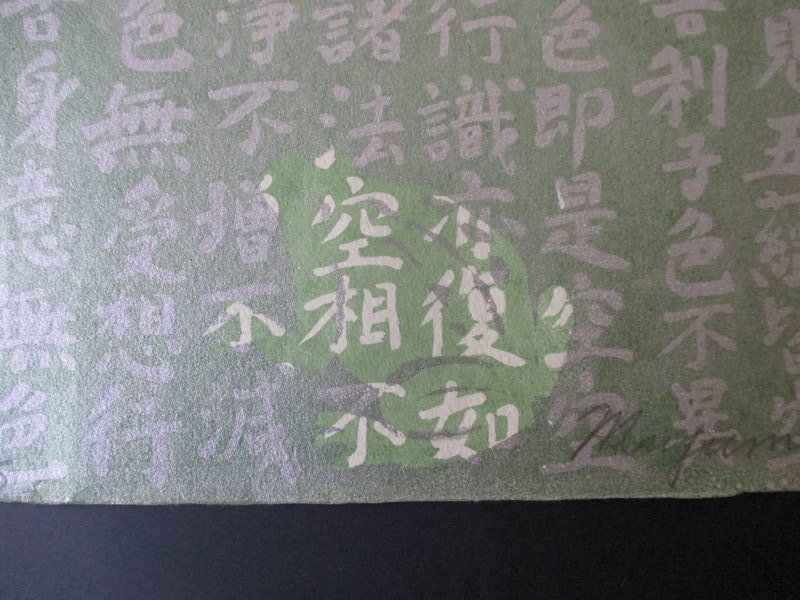 見五蘊皆空
舍利子色不異
色即是空空
行識亦復如
諸法空相不
淨不增不減
色無受想行
舌身意無色